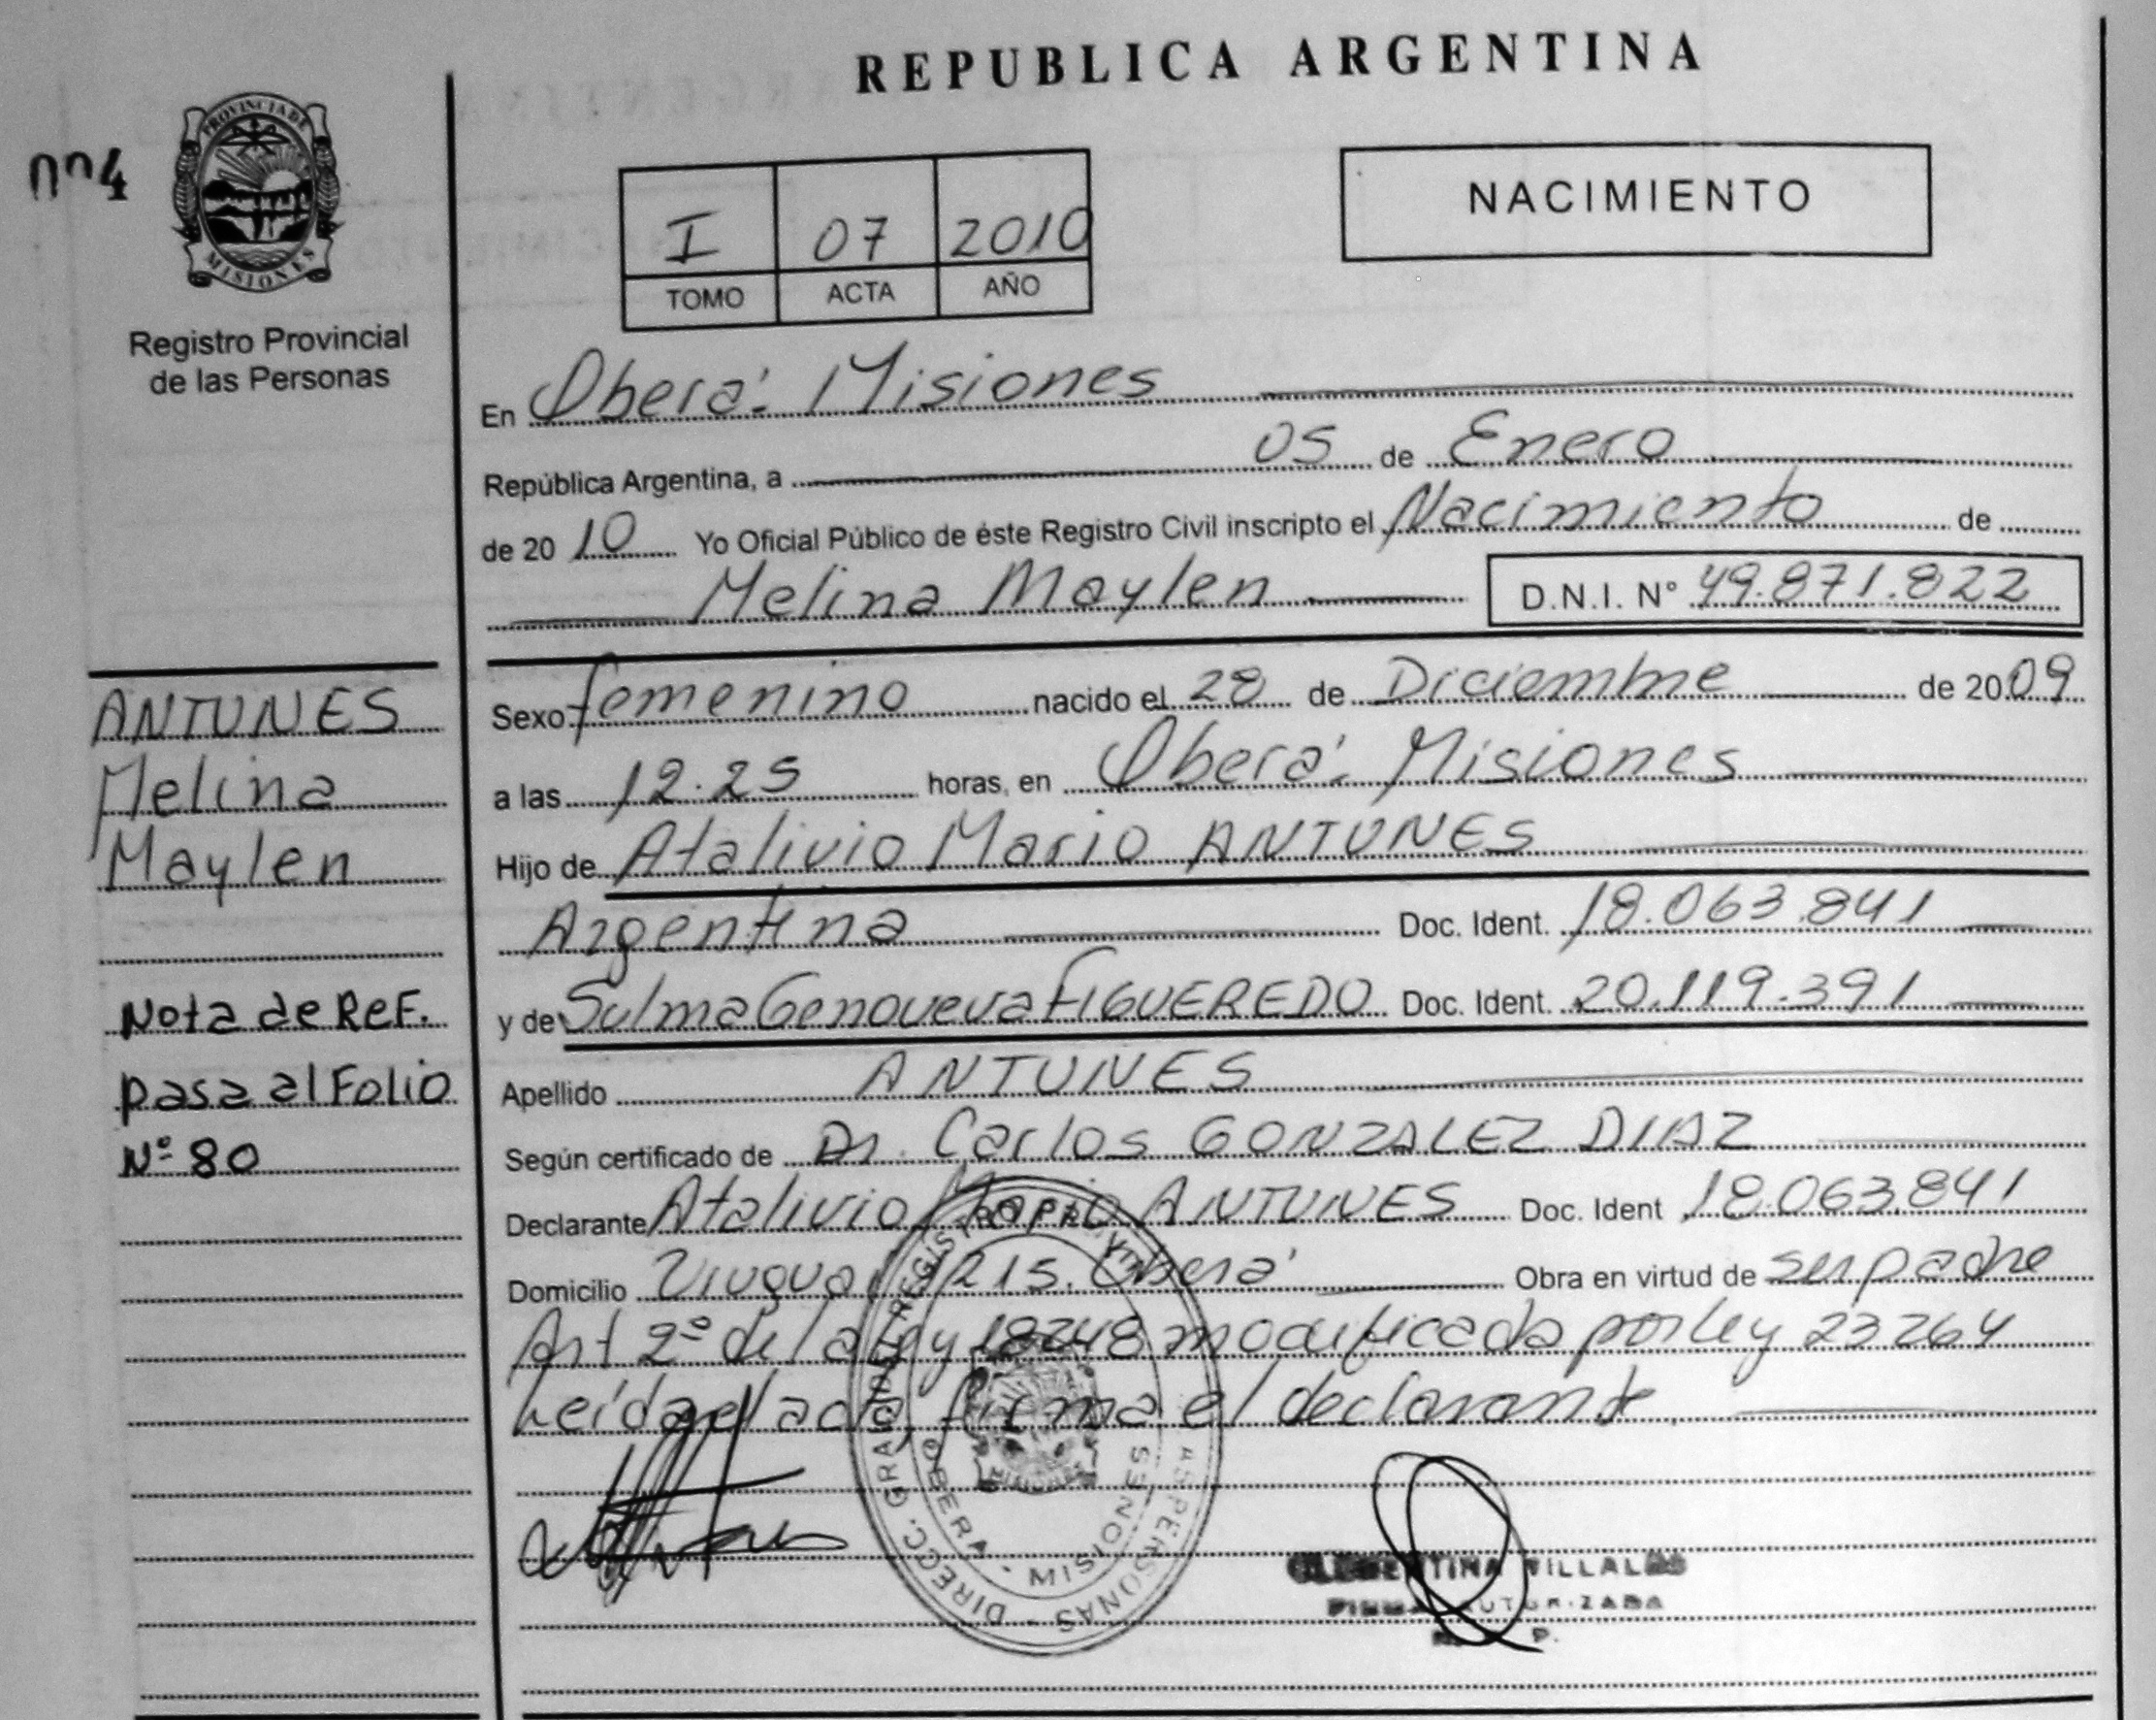 REPUBLICA ARGENTINA
nº4
PROVINCIA DE
MISIONES
Registro Provincial
de las Personas
I 07 2010
TOMO ACTA AÑO
NACIMIENTO
En Oberá: Misiones
República Argentina, a 05 de Enero
de 20 10 Yo Oficial Público de éste Registro Civil inscripto el Nacimiento de
Melina Maylen D.N.I. Nº 49.871.822
ANTUNES
Melina
Maylen
Nota de Ref.
pasa al Folio
Nº 80
Sexo femenino nacido el 28 de Diciembre de 20 09
a las 12.25 horas, en Oberá: Misiones
Hijo de Atalivio Mario ANTUNES
Argentina Doc. Ident. 18.063.841
y de Sulma Genoveva FIGUEREDO Doc. Ident. 20.119.391
Apellido ANTUNES
Según certificado de Dr. Carlos GONZALEZ DIAZ
Declarante Atalivio Mario ANTUNES Doc. Ident 18.063.841
Domicilio Oberá Obra en virtud de ser padre
Art 2º de la ley 18248 modificada por ley 23264
Leída el acta firma el declarante
OBERA - MISIONES
VILLALBA